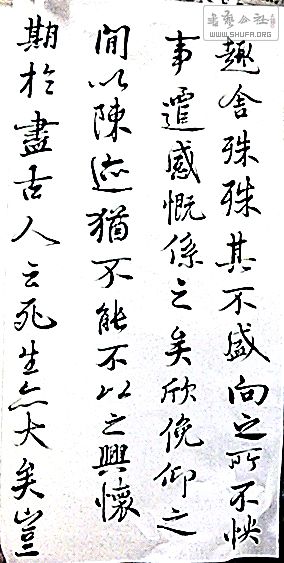 书艺公社
WWW.SHUFA.ORG
趣舍殊殊其不盛向之所不怏
事遷感慨係之矣欣俛仰之
間以陳迹猶不能不以之興懷
期於盡古人云死生亦大矣豈